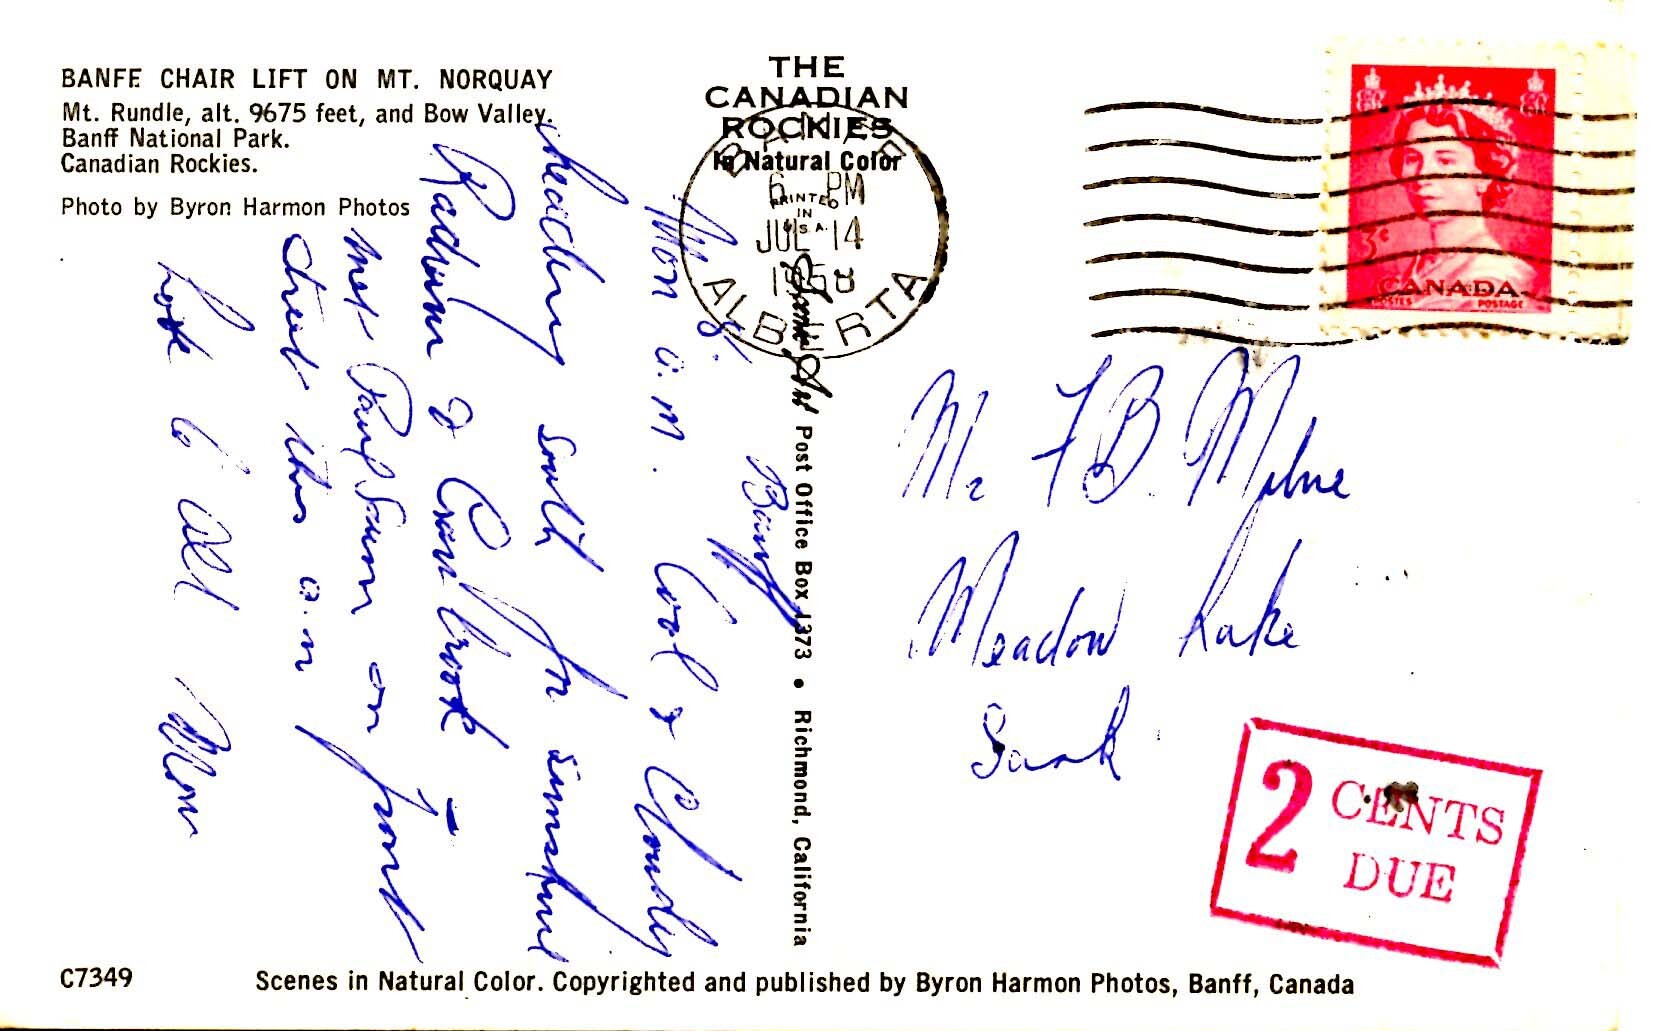 BANFF CHAIR LIFT ON MT. NORQUAY
Mt. Rundle, alt. 9675 feet, and Bow Valley.
Banff National Park.
Canadian Rockies.
Photo by Byron Harmon Photos
THE
CANADIAN
ROCKIES
In Natural Color
PRINTED
IN
U.S.A.
BANFF
6 PM
JUL 14
1958
ALBERTA
3¢
CANADA
POSTES POSTAGE
Banff
Mon a.m. Cool & Cloudy
heading south for sunshine
Radium & Cranbrook –
met Paul on
street this a.m
Love to all Mom
Mr F B Milne
Meadow Lake
Sask
2 CENTS
DUE
Post Office Box 1373 • Richmond, California
C7349
Scenes in Natural Color. Copyrighted and published by Byron Harmon Photos, Banff, Canada